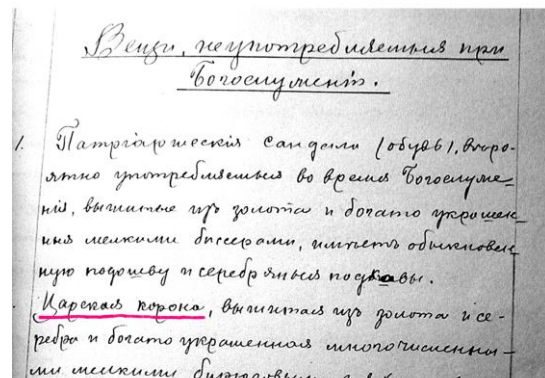 Вещи, неупотребляемыя при
Богослуженіи.
1. Патріаршескія сандали (обувь), вѣро-
ятно употребляемыя во время Богослуже-
нія, вышитые изъ золота и богато украшен-
ныя мелкими бисерами, имѣетъ обыкновен-
ную подошву и серебряныя подковы.
Царская корона, вышитая изъ золота и се-
ребра и богато украшенная многочисленны-
ми мелкими бирюзовыми